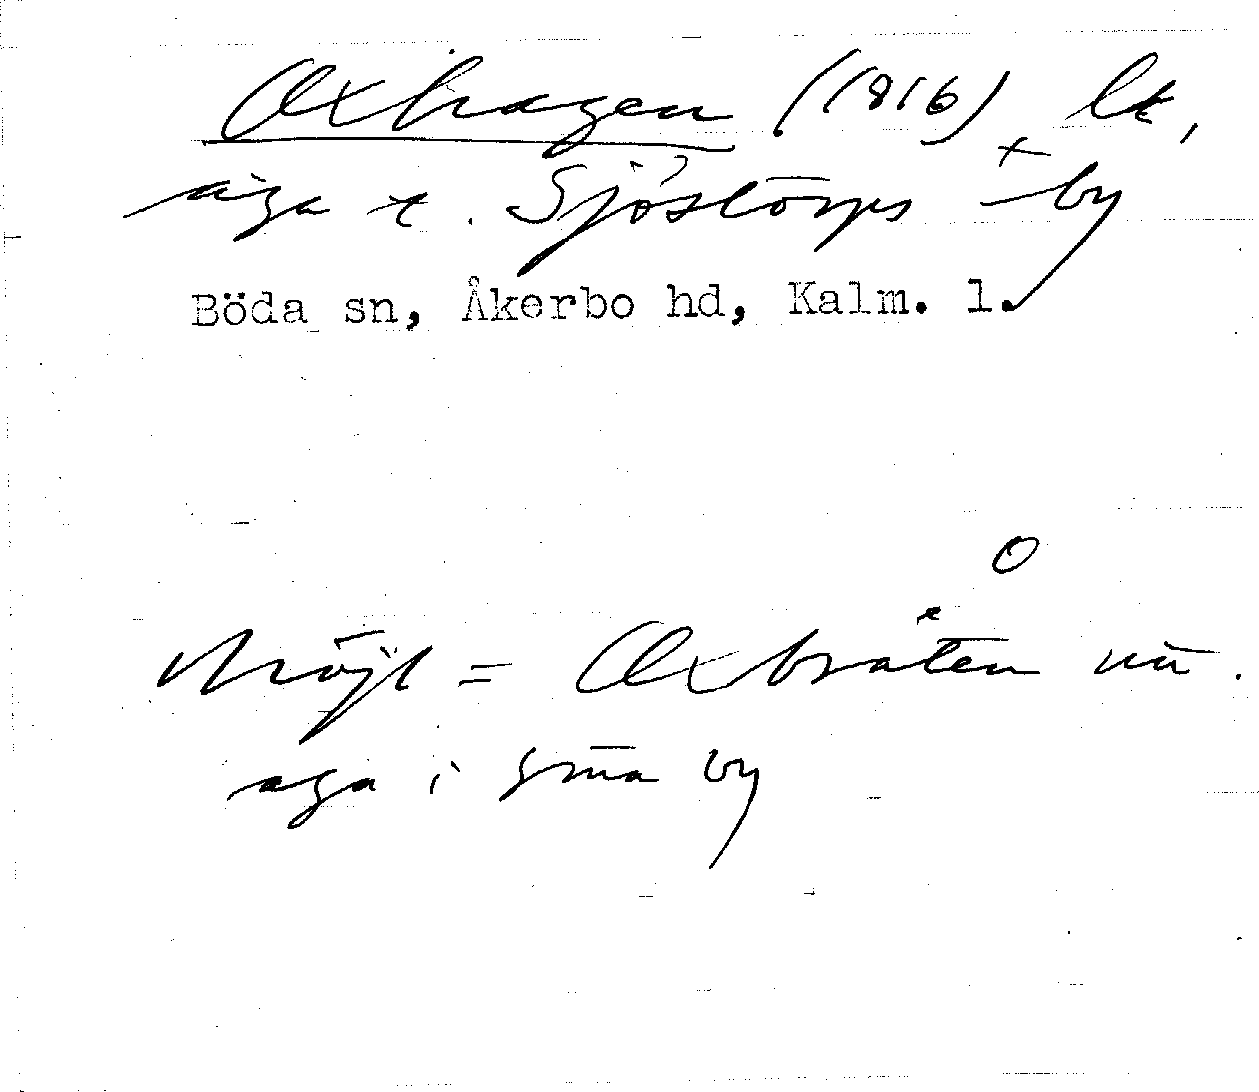 Oxhagen (1816) lt,
äga t. Sjöstorps by
Böda sn, Åkerbo hd, Kalm. l.
Möjl = Oxbråten nu.
äga i sma by